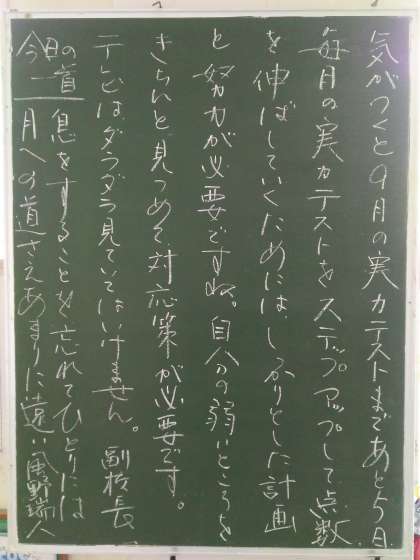 気がつくと9月の実力テストまであと5日、
毎月の実力テストをステップアップして点数
を伸ばしていくためには、しっかりとした計画
と努力が必要ですね。自分の弱いところを
きちんと見つめて対応策が必要です。
テレビはダラダラ見ていてはいけません。 副校長
今日の道 息をすることを忘れてひとりには
一月への道さえあまりに遠い 風野瑞人